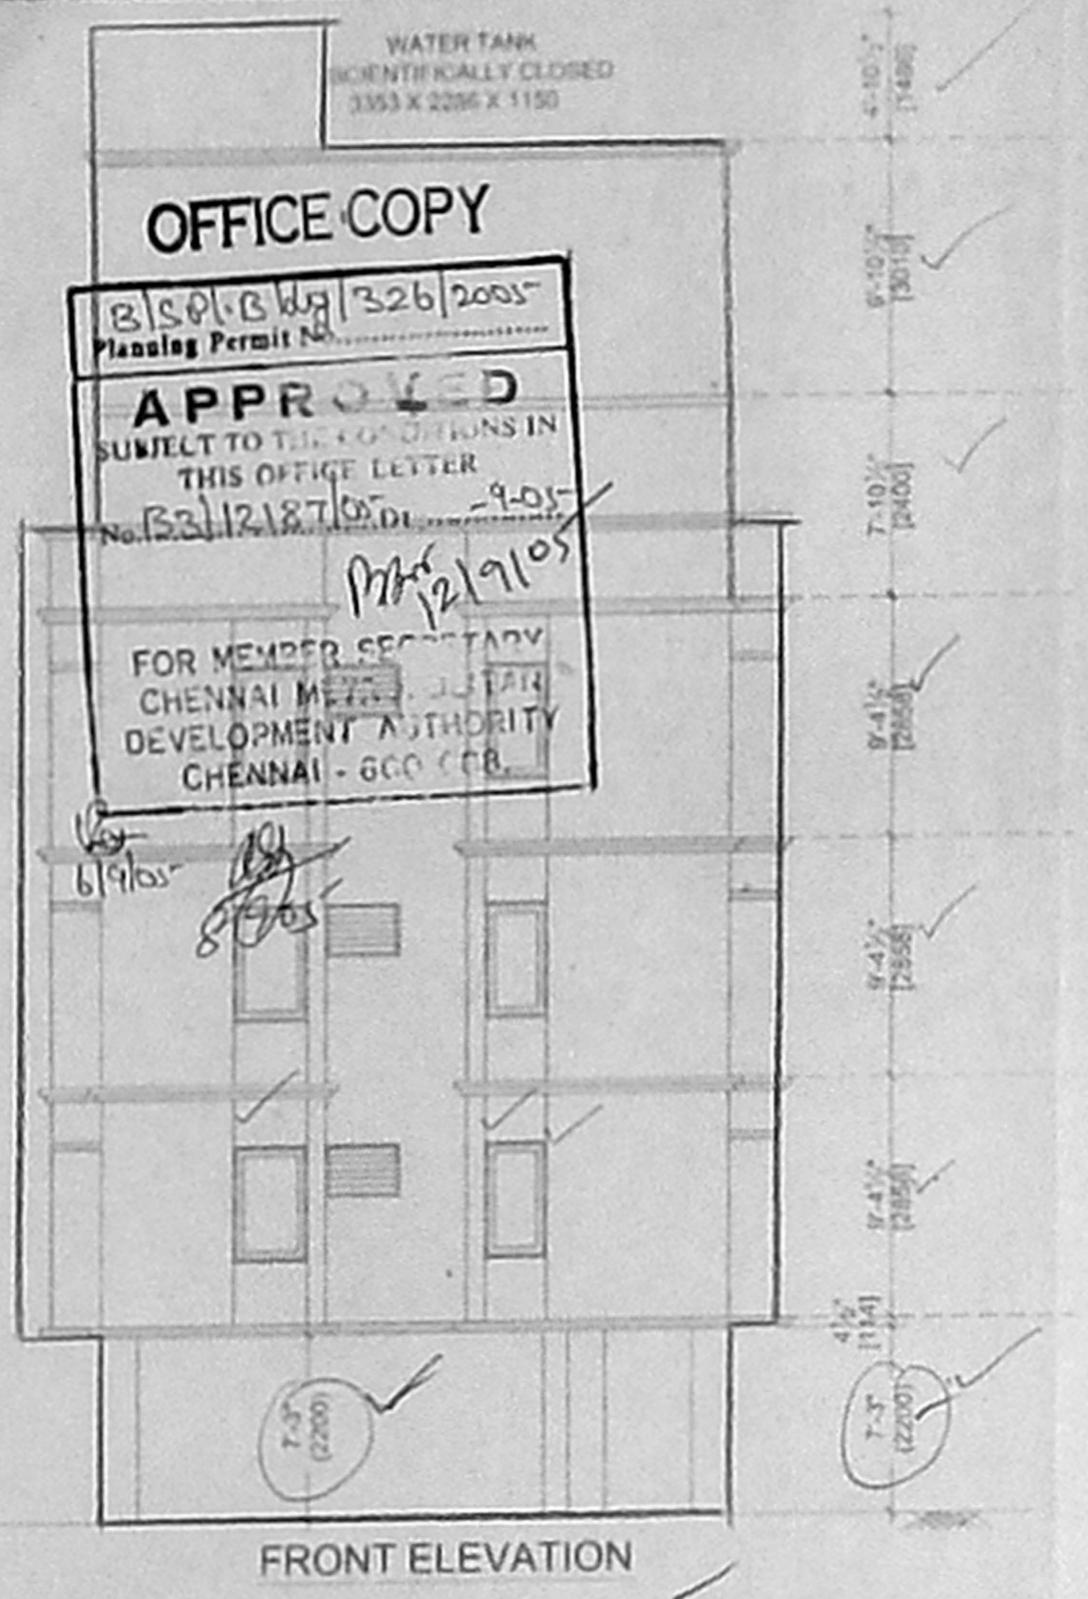 WATER TANK
SCIENTIFICALLY CLOSED
3353 X 2286 X 1150
4'-10½"
[1486]
OFFICE COPY
9'-10½"
[3010]
B/Spl.Bldg/326/2005
Planning Permit No.
APPROVED
SUBJECT TO THE CONDITIONS IN
THIS OFFICE LETTER
No. B3/12187/05 Dt. -9-05
7'-10½"
[2400]
12/9/05
FOR MEMBER SECRETARY
CHENNAI METROPOLITAN
DEVELOPMENT AUTHORITY
CHENNAI - 600 008.
9'-4½"
[2858]
6/9/05
9'-4½"
[2858]
9'-4½"
[2858]
4½"
[114]
7'-3"
(2200)
7'-3"
(2200)
FRONT ELEVATION